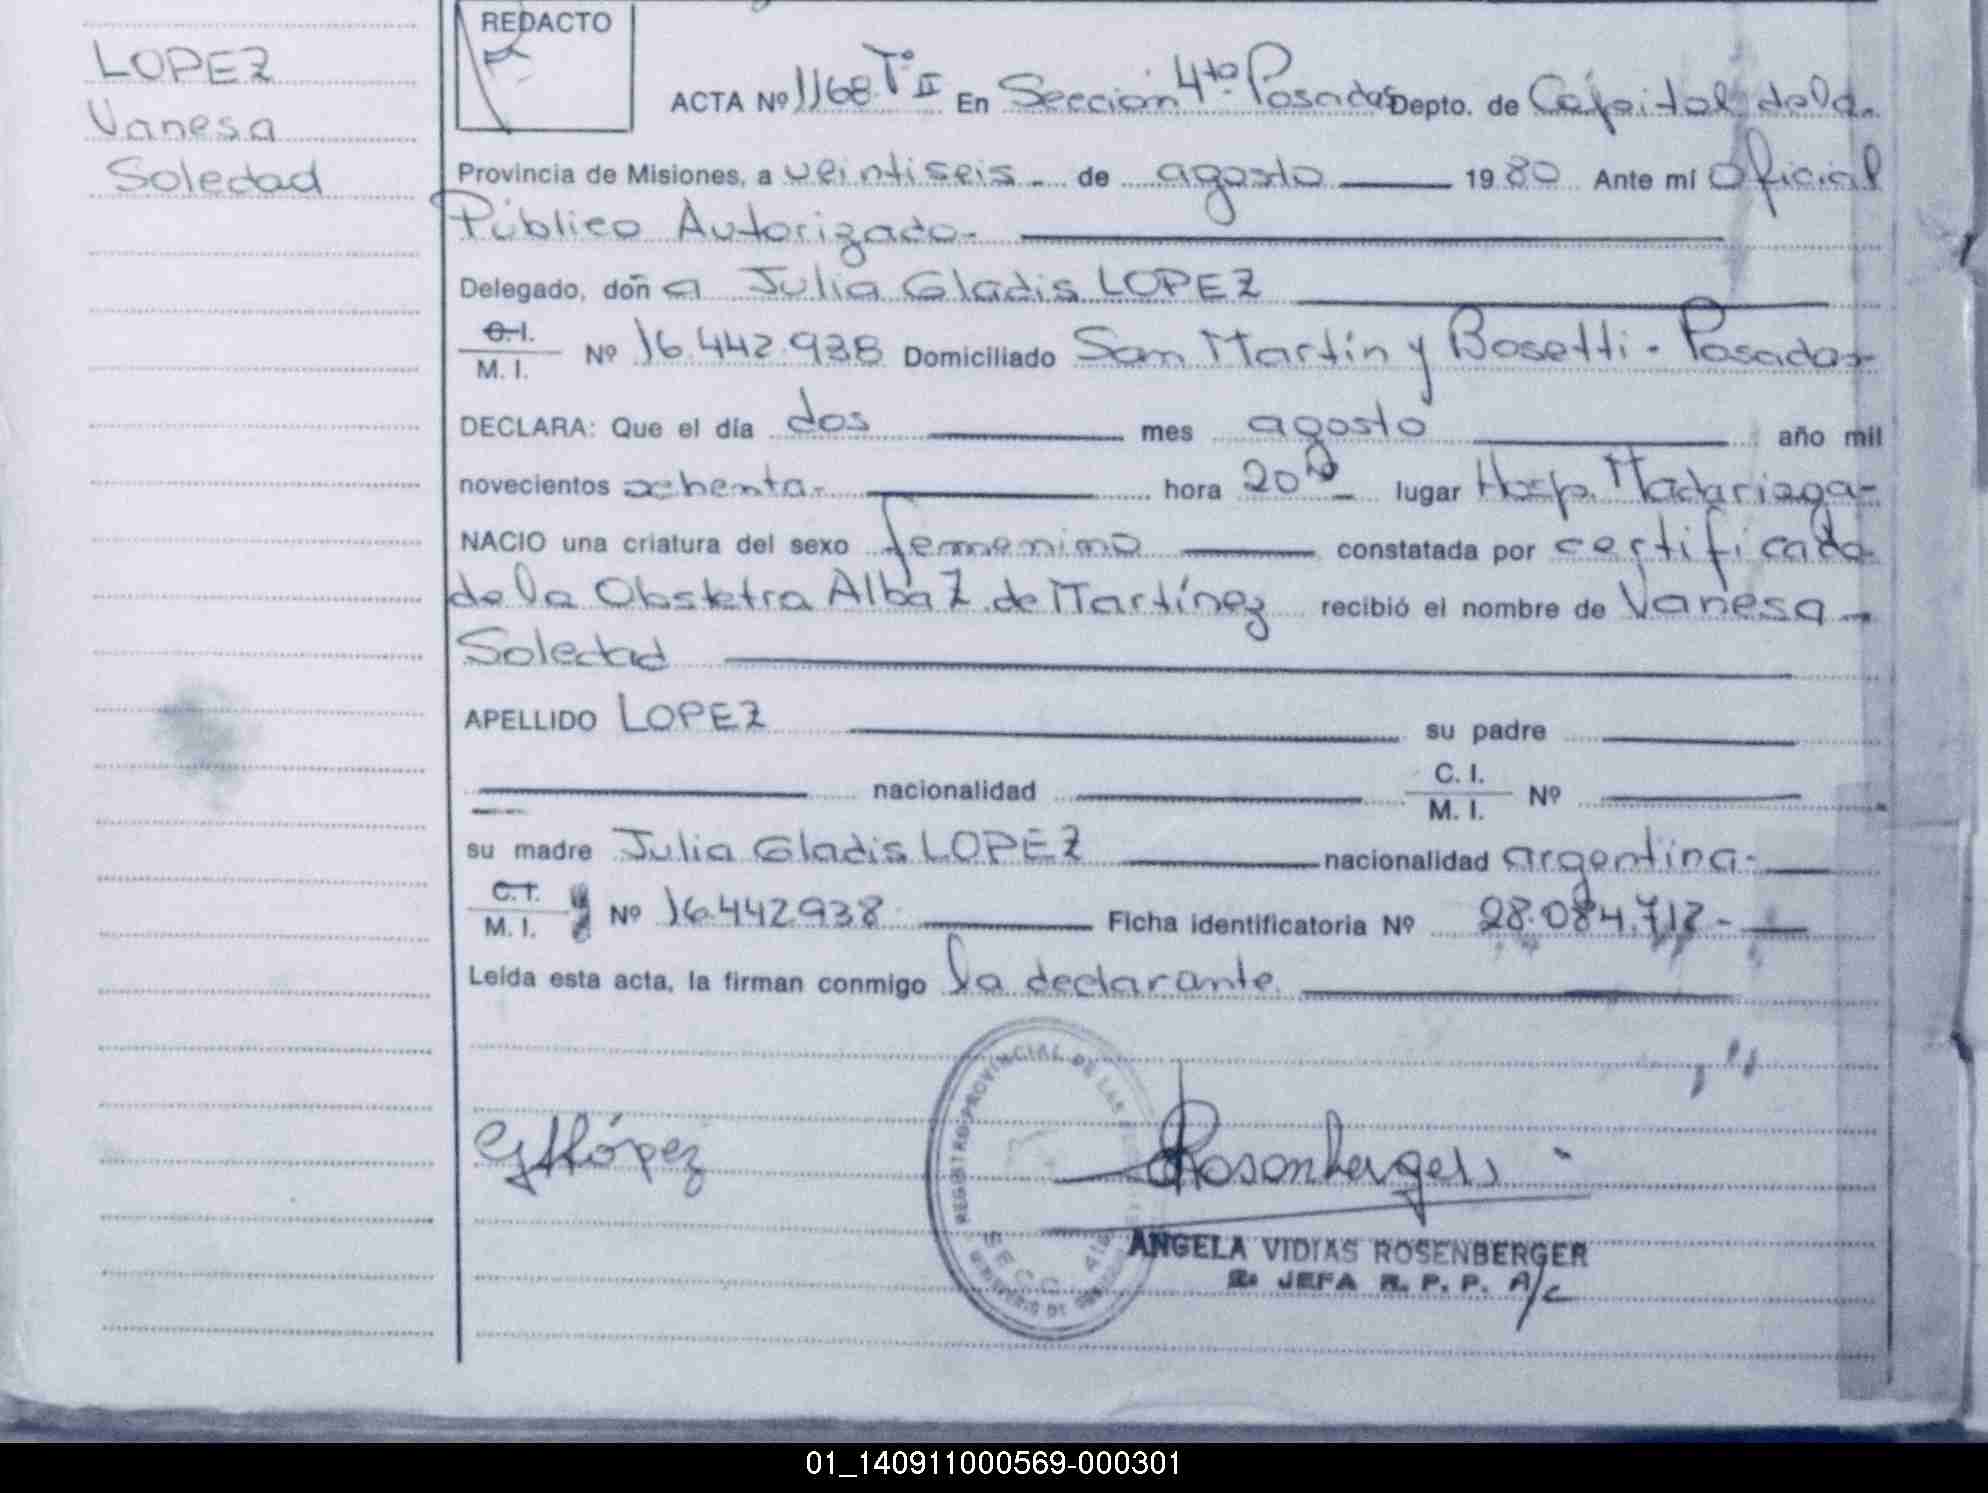 LOPEZ
Vanesa
Soledad
REDACTO
ACTA Nº 1168 Tº II En Sección 4ta Posadas Depto. de Capital de la
Provincia de Misiones, a veintiseis de agosto 1980 Ante mí Oficial
Público Autorizado-
Delegado, doña Julia Gladis LOPEZ
C.I.
M. I. Nº 16.442.938 Domiciliado San Martín y Bosetti - Posadas-
DECLARA: Que el día dos mes agosto año mil
novecientos ochenta- hora 20 lugar Hosp. Madariaga-
NACIO una criatura del sexo femenino constatada por certificado
de la Obstetra Alba Z. de Martínez recibió el nombre de Vanesa
Soledad
APELLIDO LOPEZ su padre
nacionalidad C. I.
M. I. Nº
su madre Julia Gladis LOPEZ nacionalidad argentina-
C.I.
M. I. Nº 16.442.938 Ficha identificatoria Nº 28.084.712-
Leída esta acta, la firman conmigo la declarante
REGISTRO PROVINCIAL DE LAS
SECC. 4ta
GLópez
Rosenberger
ANGELA VIDIAS ROSENBERGER
2a JEFA R. P. P. A/c
01_140911000569-000301